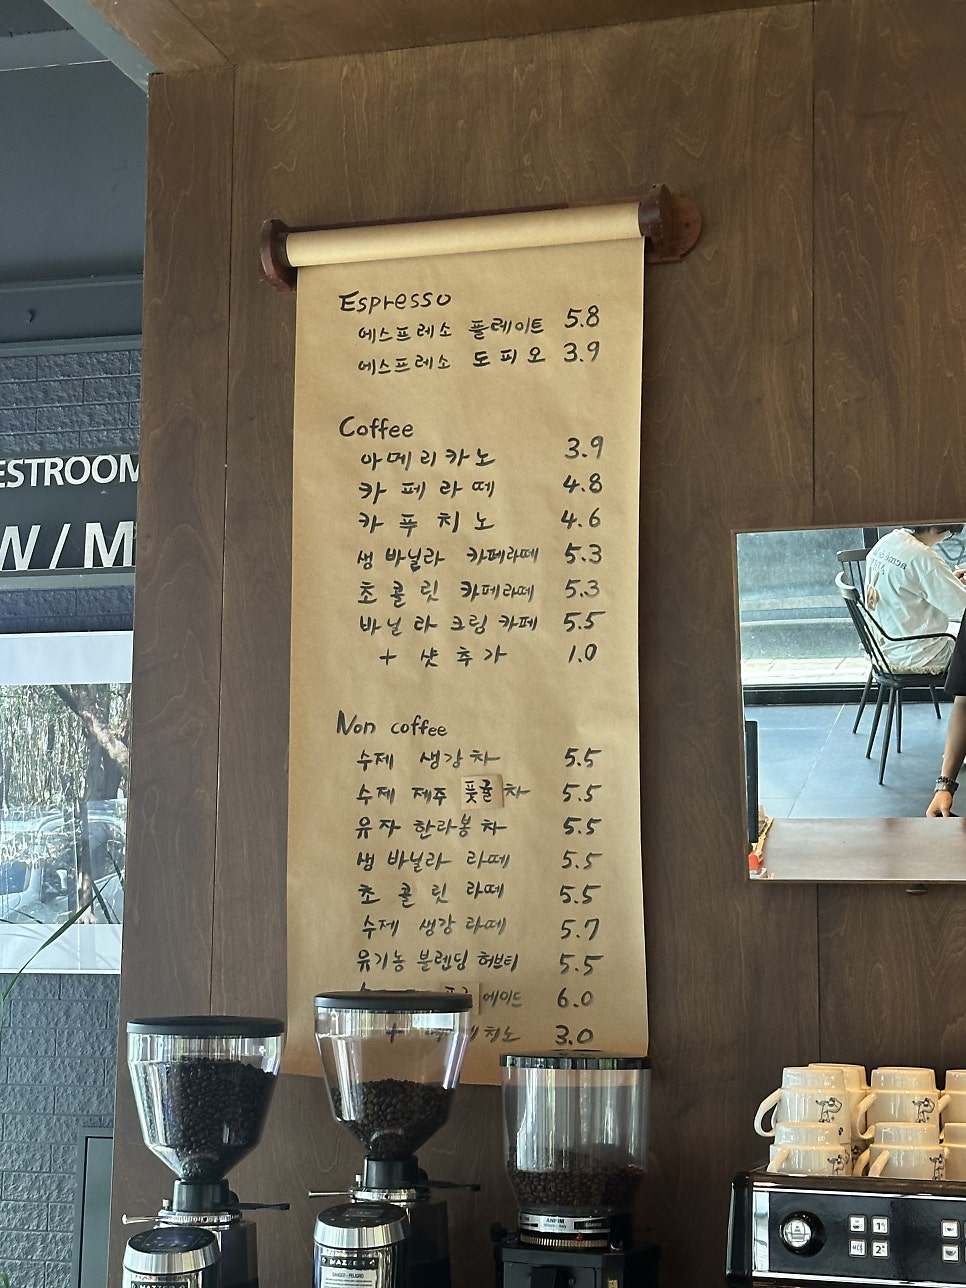 Espresso
에스프레소 플레이트 5.8
에스프레소 도피오 3.9
Coffee
아메리카노 3.9
카페라떼 4.8
카푸치노 4.6
생 바닐라 카페라떼 5.3
초콜릿 카페라떼 5.3
바닐라 크림 카페 5.5
+ 샷 추가 1.0
Non coffee
수제 생강차 5.5
수제 제주 풋귤차 5.5
유자 한라봉차 5.5
생 바닐라 라떼 5.5
초콜릿 라떼 5.5
수제 생강 라떼 5.7
유기농 블렌딩 허브티 5.5
에이드 6.0
+ 치노 3.0
ESTROOM
W / M
MAZZER
ANFIM